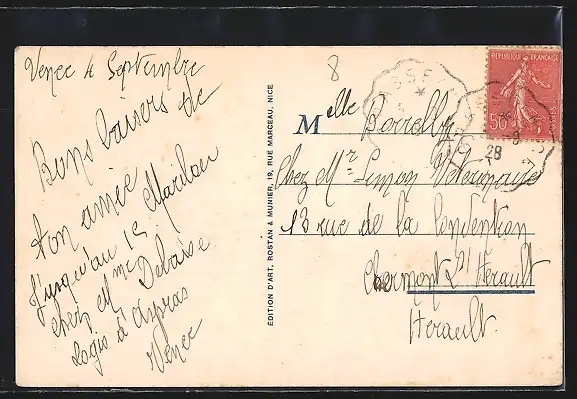 Vence 4 Septembre
Bons baisers de
ton amie
Marilou
Jusqu'au 15
chez Mme Debaise
Logis d'aspras
Vence
8
ÉDITION D'ART, ROSTAN & MUNIER, 19, RUE MARCEAU, NICE
Melle Borrelly
Chez Mr Simon Veterinaire
13 rue de la Convention
Clermont L'Herault
Herault.
REPUBLIQUE FRANÇAISE
50
28